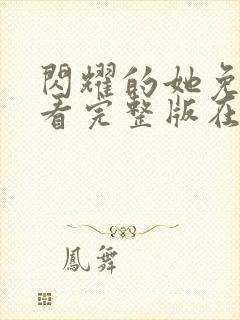 閃耀的她免
看完整版在
鳳舞